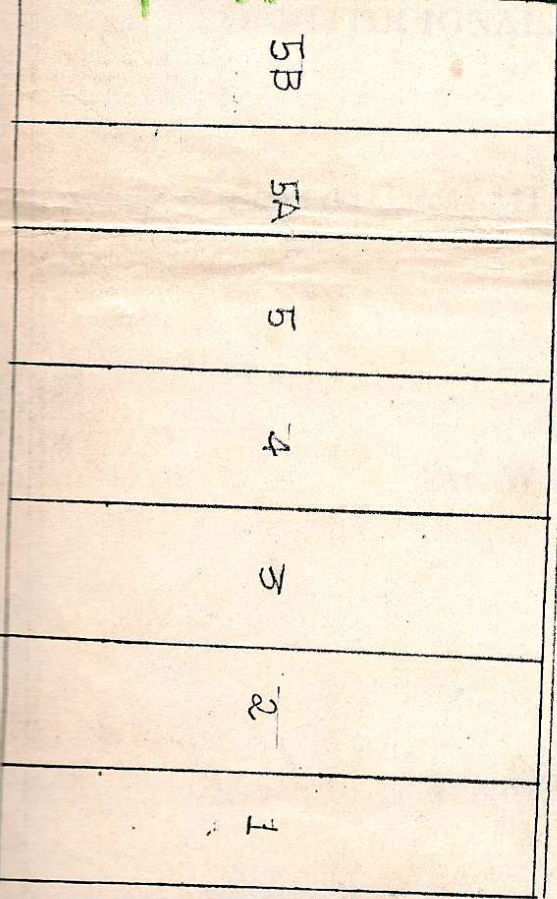 5B
5A
5
4
3
2
1